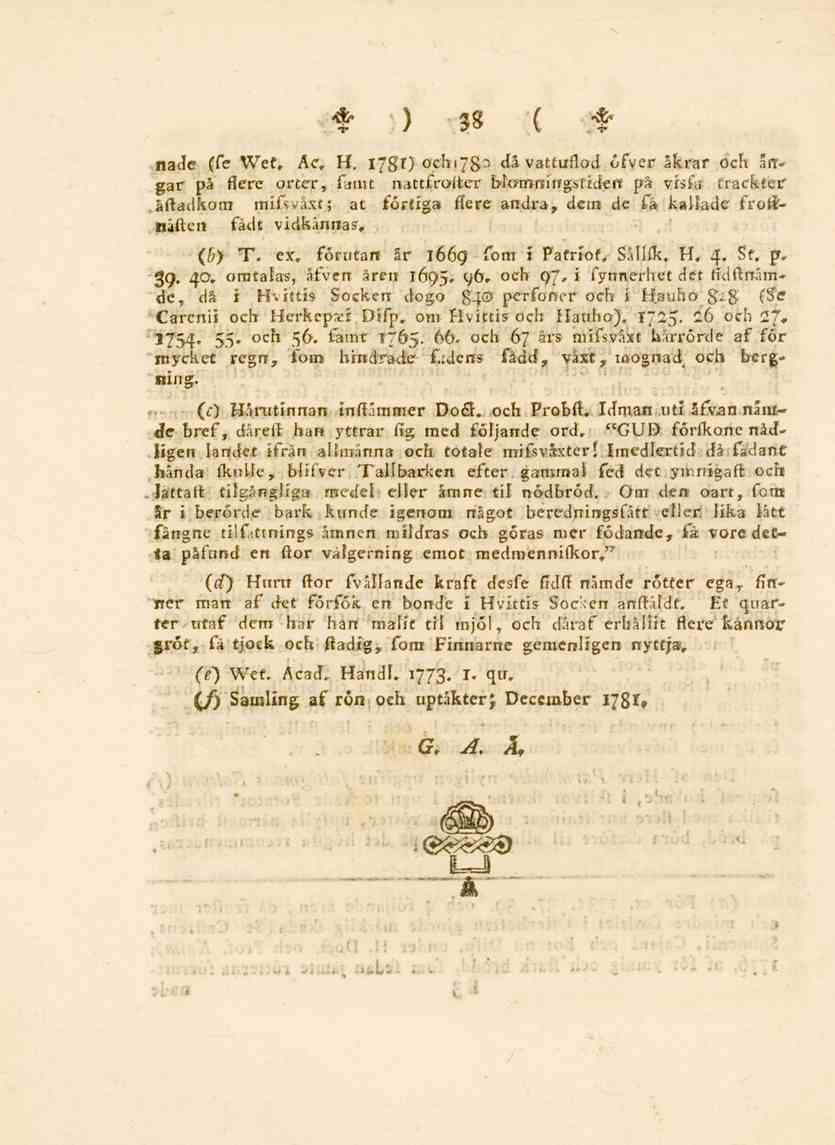 ) 38 (
nade (ſe Wet. Ac. H. 1781) och 1780 då vattuflod öfver åkrar och än-
gar på flere orter, ſamt nattfroſter blomningstiden på viſſa trackter
åſtadkom miſsväxt; at förtiga flere andra, dem de ſå kallade froſt-
näſten ſådt vidkännas.
(b) T. ex. förutan år 1669 ſom i Patriot. Sällſk. H. 4. St. p.
39. 40. omtalas, äfven åren 1695. 96. och 97. i ſynnerhet det ſidſtnäm-
de, då i Hvittis Socken dogo 840 perſoner och i Hauho 828 (Se
Carenii och Herkepæi Diſp. om Hvittis och Hauho). 1725. 26 och 27.
1754. 55. och 56. ſamt 1765. 66. och 67 års miſsväxt härrörde af för
mycket regn, ſom hindrade ſädens ſådd, växt, mognad och berg-
ning.
(c) Härutinnan inſtämmer Doct. och Probſt. Idman uti äfvan näm-
de bref, däreſt han yttrar ſig med följande ord. “GUD förſkone nåd-
ligen landet ifrån allmänna och totale miſsväxter! Imedlertid då ſådant
hända ſkulle, blifver Tallbarken efter gammal ſed det ymnigaſt och
lättaſt tilgängliga medel eller ämne til nödbröd. Om den oart, ſom
är i berörde bark kunde igenom något beredningsſätt eller lika lätt
fångne tilſattnings ämnen mildras och göras mer födande, ſå vore det-
ta påfund en ſtor välgerning emot medmenniſkor.”
(d) Huru ſtor ſvällande kraft desſe ſidſt nämde rötter ega, fin-
ner man af det förſök en bonde i Hvittis Socken anſtäldt. Et quar-
ter utaf dem har han malit til mjöl, och däraf erhållit flere kannor
gröt, ſå tjock och ſtadig, ſom Finnarne gemenligen nyttja.
(e) Wet. Acad. Handl. 1773. 1. qu.
(f) Samling af rön och uptäkter; December 1781.
G. A. Å.